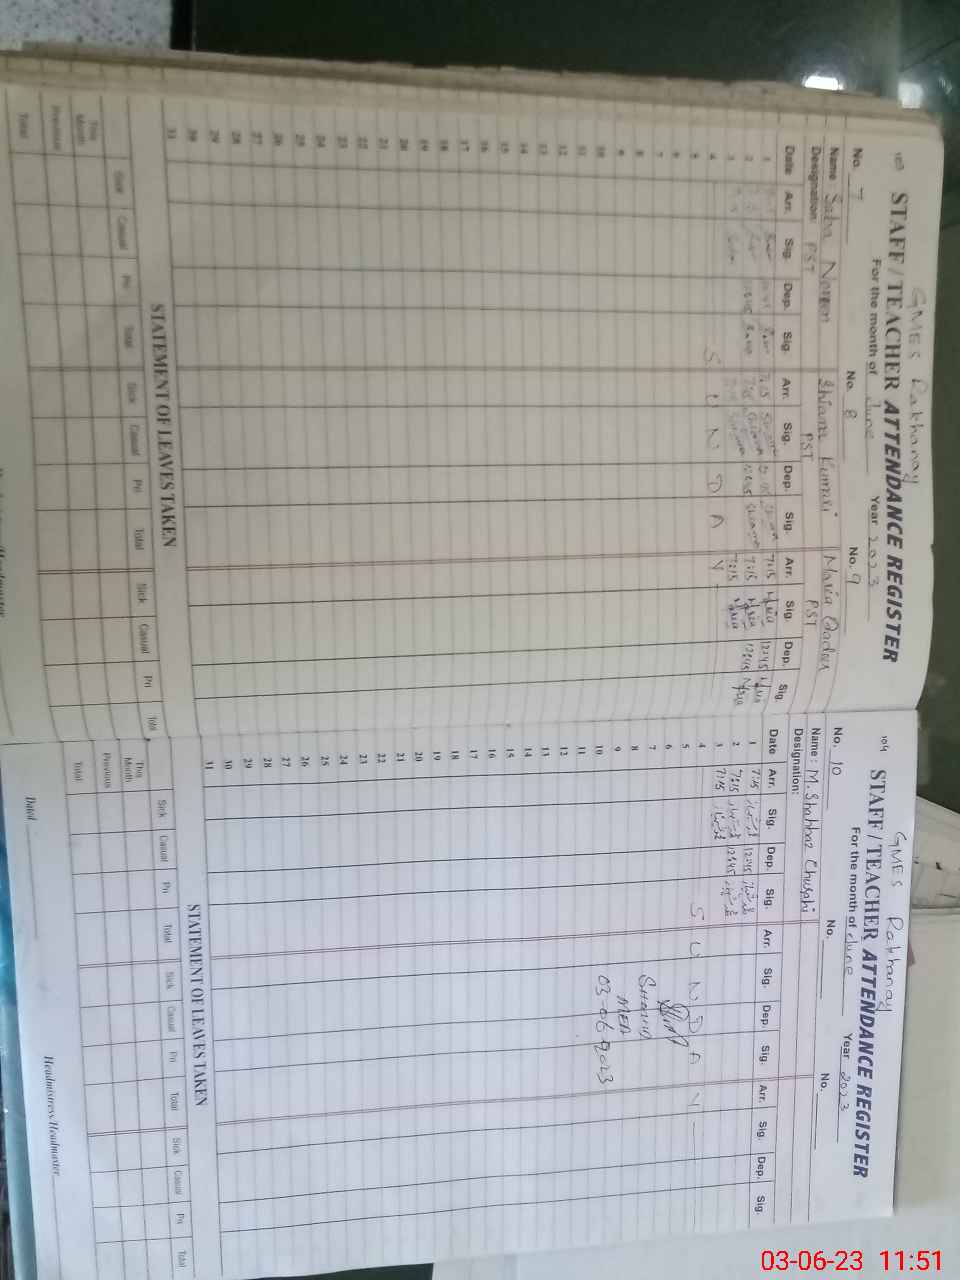 GMES Rakhanay
103 STAFF / TEACHER ATTENDANCE REGISTER
For the month of June Year 2023
No. 7 No. 8 No. 9
Name Saba Noreen Kumari Maria Qadir
Designation PST PST PST
Date Arr. Sig. Dep. Sig. Arr. Sig. Dep. Sig. Arr. Sig. Dep. Sig.
1 7:15 7:15 12:45
2 12:45 7:15 12:45 7:15 12:45
3 7:15
4 S U N D A Y
5
6
7
8
9
10
11
12
13
14
15
16
17
18
19
20
21
22
23
24
25
26
27
28
29
30
31
STATEMENT OF LEAVES TAKEN
Sick Casual Pri Total Sick Casual Pri Total Sick Casual Pri Total
This Month
Previous
Total
GMES Rakhanay
104 STAFF / TEACHER ATTENDANCE REGISTER
For the month of June Year 2023
No. 10 No. No.
Name: M. Shahbaz
Designation:
Date Arr. Sig. Dep. Sig. Arr. Sig. Dep. Sig. Arr. Sig. Dep. Sig.
1 7:15 12:45
2 7:15 12:45
3 7:15
4 S U N D A Y
5
6
7
8
9 MEA
10 03-06-2023
11
12
13
14
15
16
17
18
19
20
21
22
23
24
25
26
27
28
29
30
31
STATEMENT OF LEAVES TAKEN
Sick Casual Pri Total Sick Casual Pri Total Sick Casual Pri Total
This Month
Previous
Total
Dated Headmistress/Headmaster
03-06-23 11:51